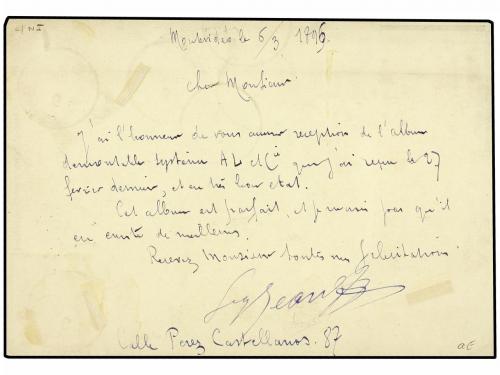 Montevideo le 6/3 1896.
Cher Monsieur
J'ai l'honneur de vous accuser reception de l'album
demontable système A L et Cie que j'ai reçu le 27
fevrier dernier, et en très bon etat.
Cet album est parfait, et je crois pas qu'il
en existe de meilleurs.
Recevez Monsieur toutes mes felicitations.
Calle Perez Castellanos. 87